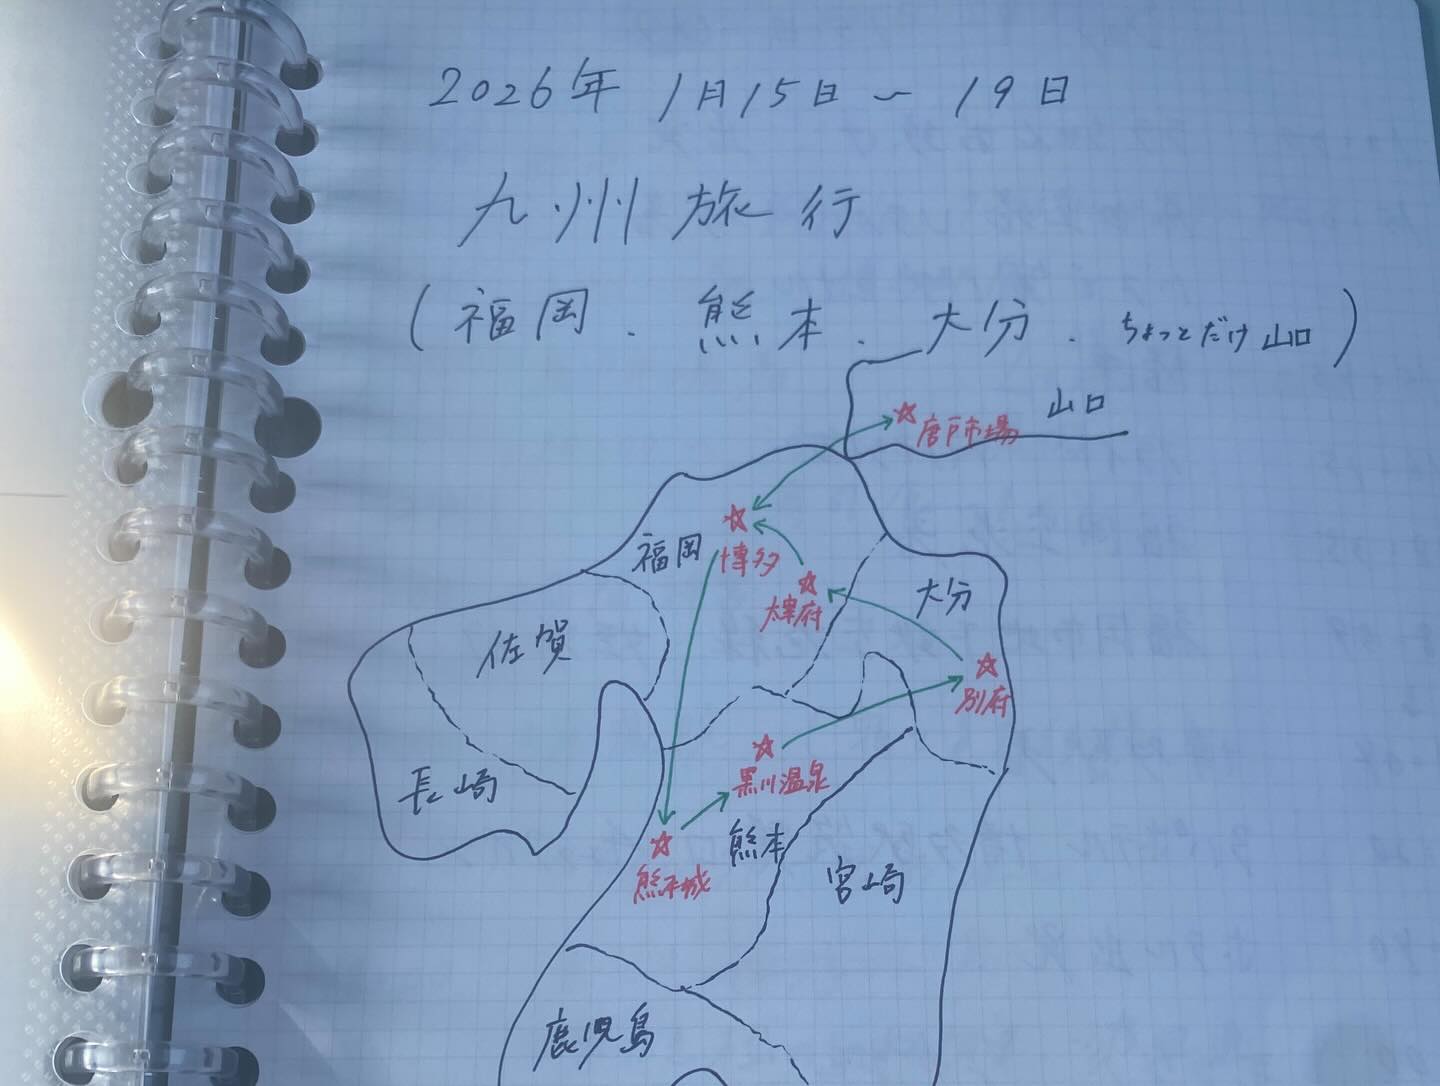 2026年 1月15日～19日
九州旅行
(福岡.熊本.大分.ちょっとだけ山口)
山口
唐戸市場
福岡
博多
大分
太宰府
佐賀
別府
長崎
黒川温泉
熊本
熊本城
宮崎
鹿児島